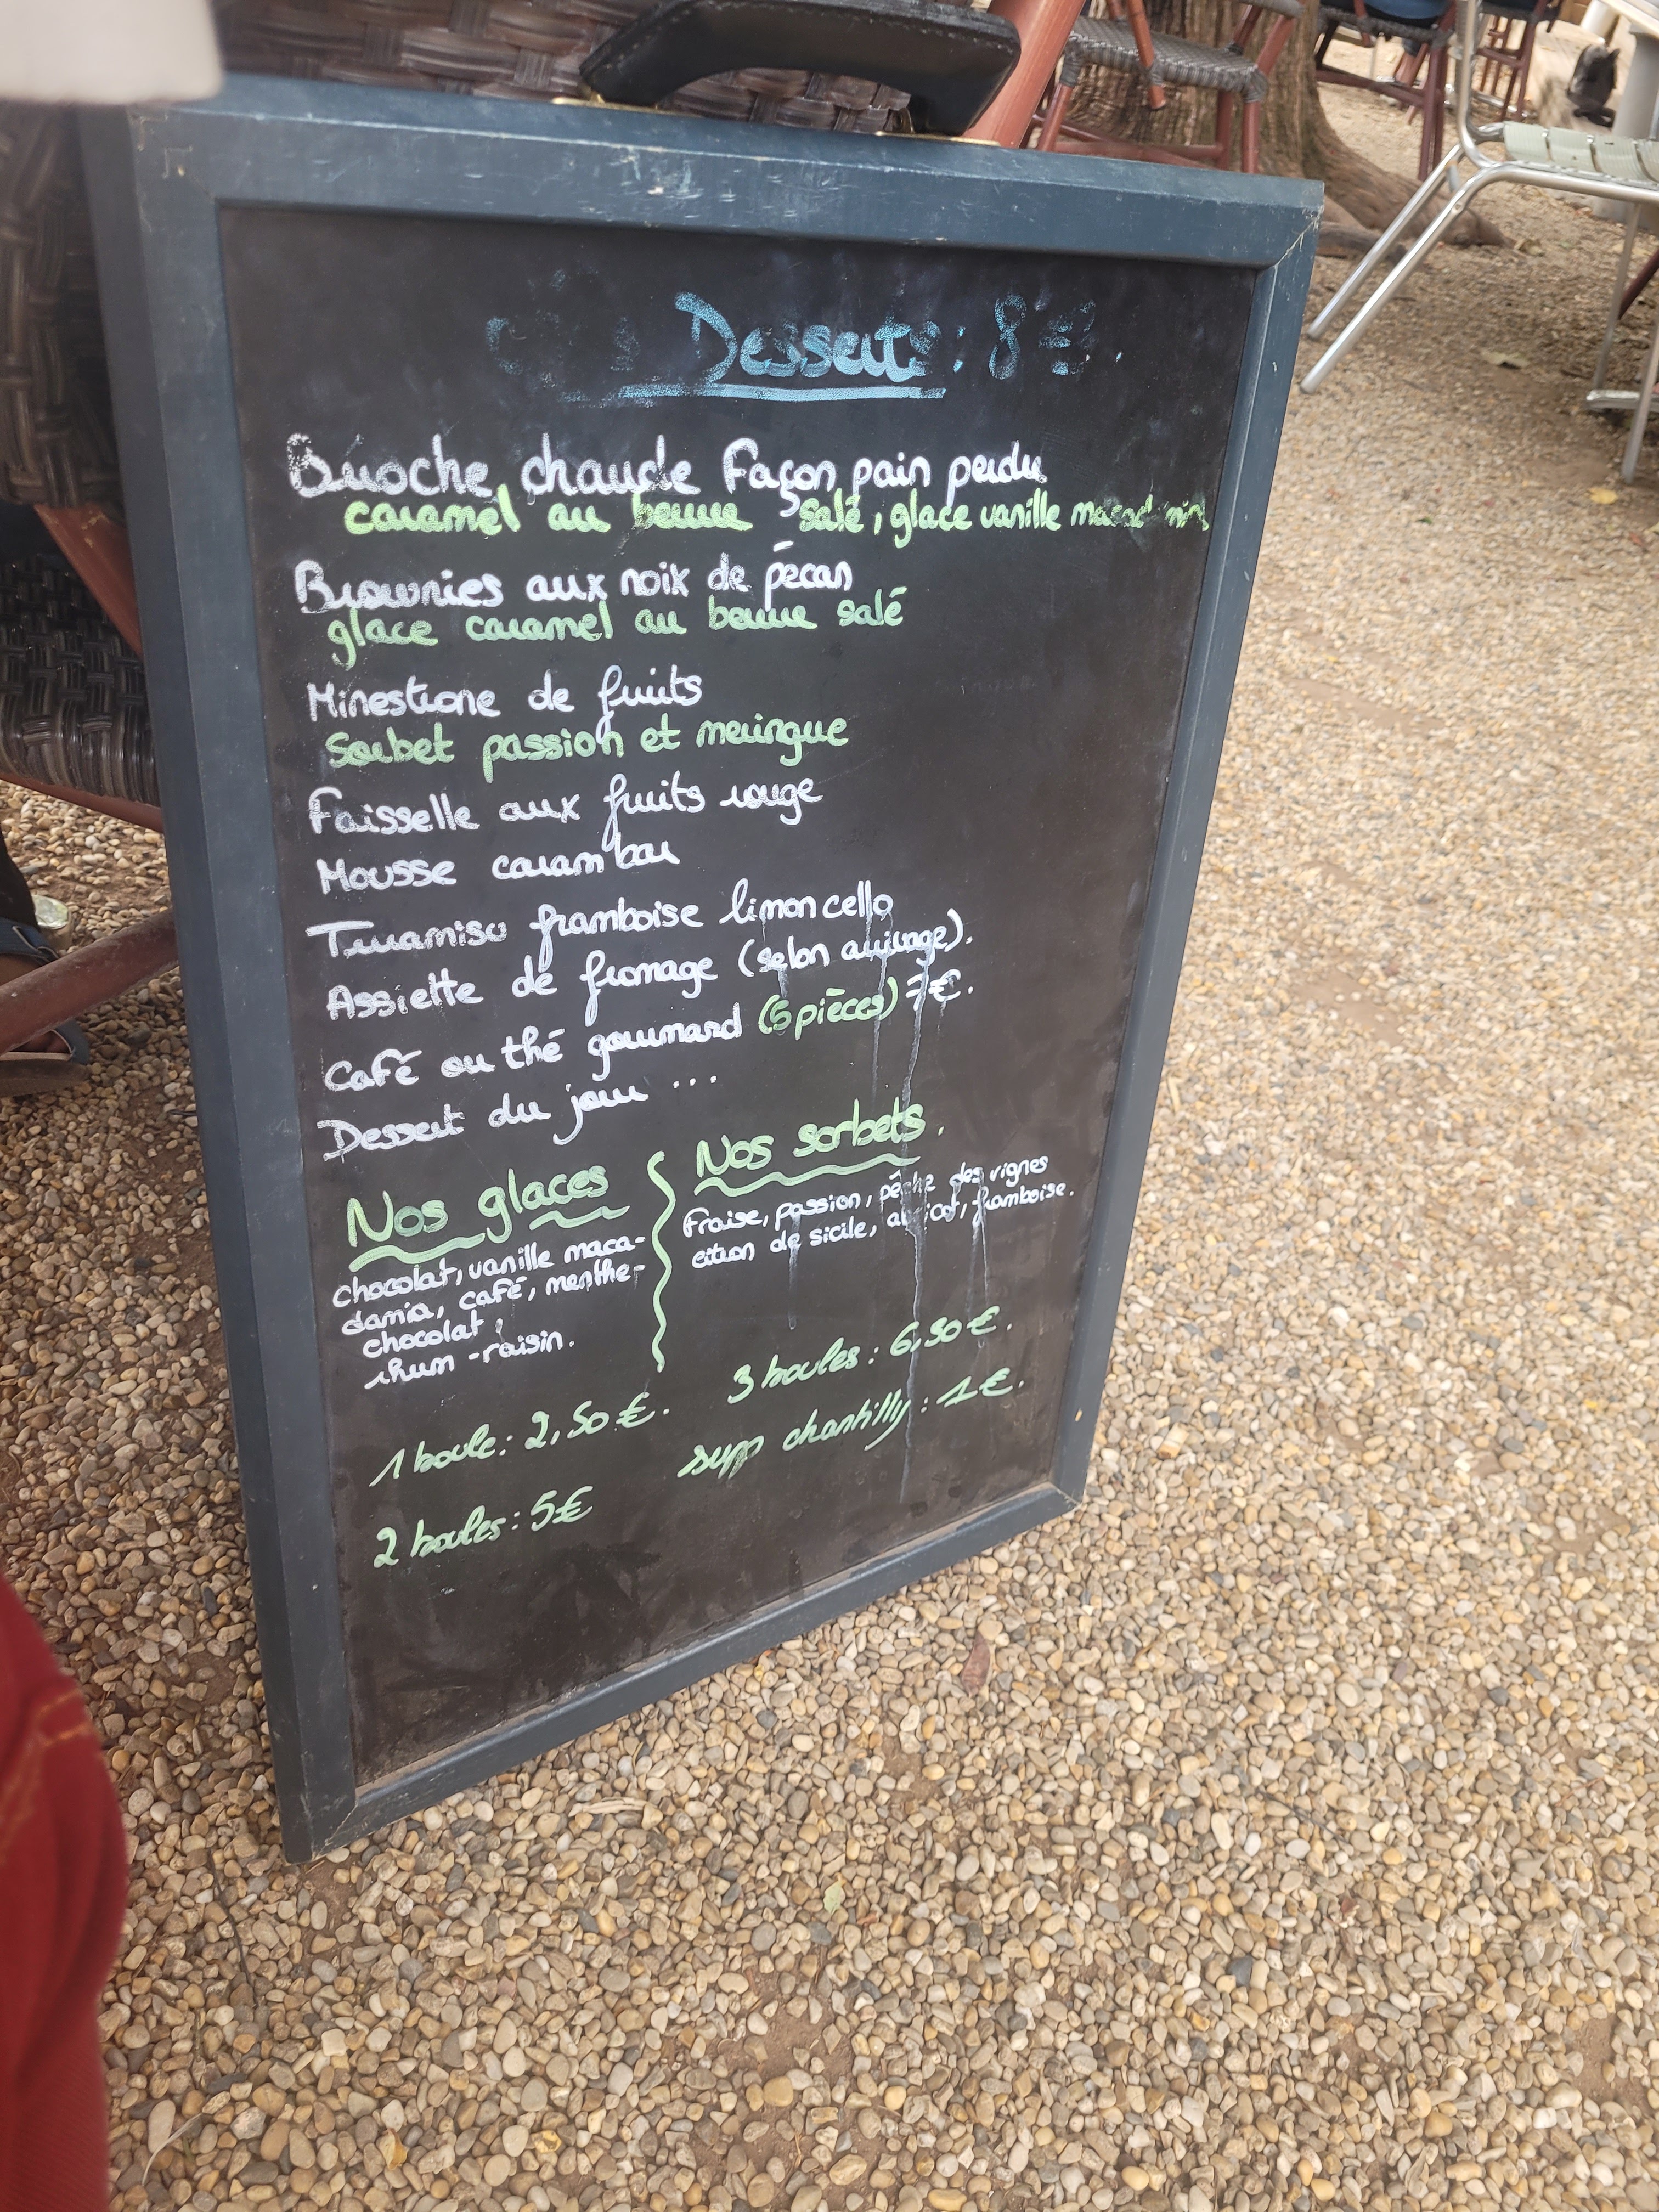 Desserts : 8 €.
Brioche chaude façon pain perdu
caramel au beurre salé, glace vanille
Brownies aux noix de pécan
glace caramel au beurre salé
Minestrone de fruits
Sorbet passion et meringue
Faisselle aux fruits rouge
Mousse carambar
Tiramisu framboise limoncello
Assiette de fromage (selon arrivage).
Café ou thé gourmand (5 pièces) €.
Dessert du jour ...
Nos glaces
chocolat, vanille maca-
damia, café, menthe-
chocolat,
rhum-raisin.
Nos sorbets.
Fraise, passion, pêche des vignes
citron de sicile, abricot, framboise.
1 boule : 2,50 €.
2 boules : 5€
3 boules : 6,50 €.
supp chantilly : 1 €.